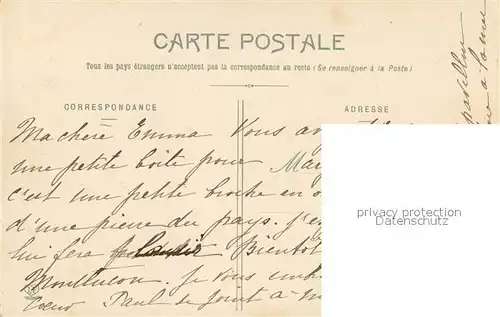 CARTE POSTALE
Tous les pays étrangers n'acceptent pas la correspondance au recto (Se renseigner à la Poste)
CORRESPONDANCE
ADRESSE
Ma chère Emma Vous
une petite boîte pour
c'est une petite broche en
d'une pierre du pays.
lui fera plaisir Bientôt
Montluçon. Je vous
Paul se joint à
à la
privacy protection
watermark